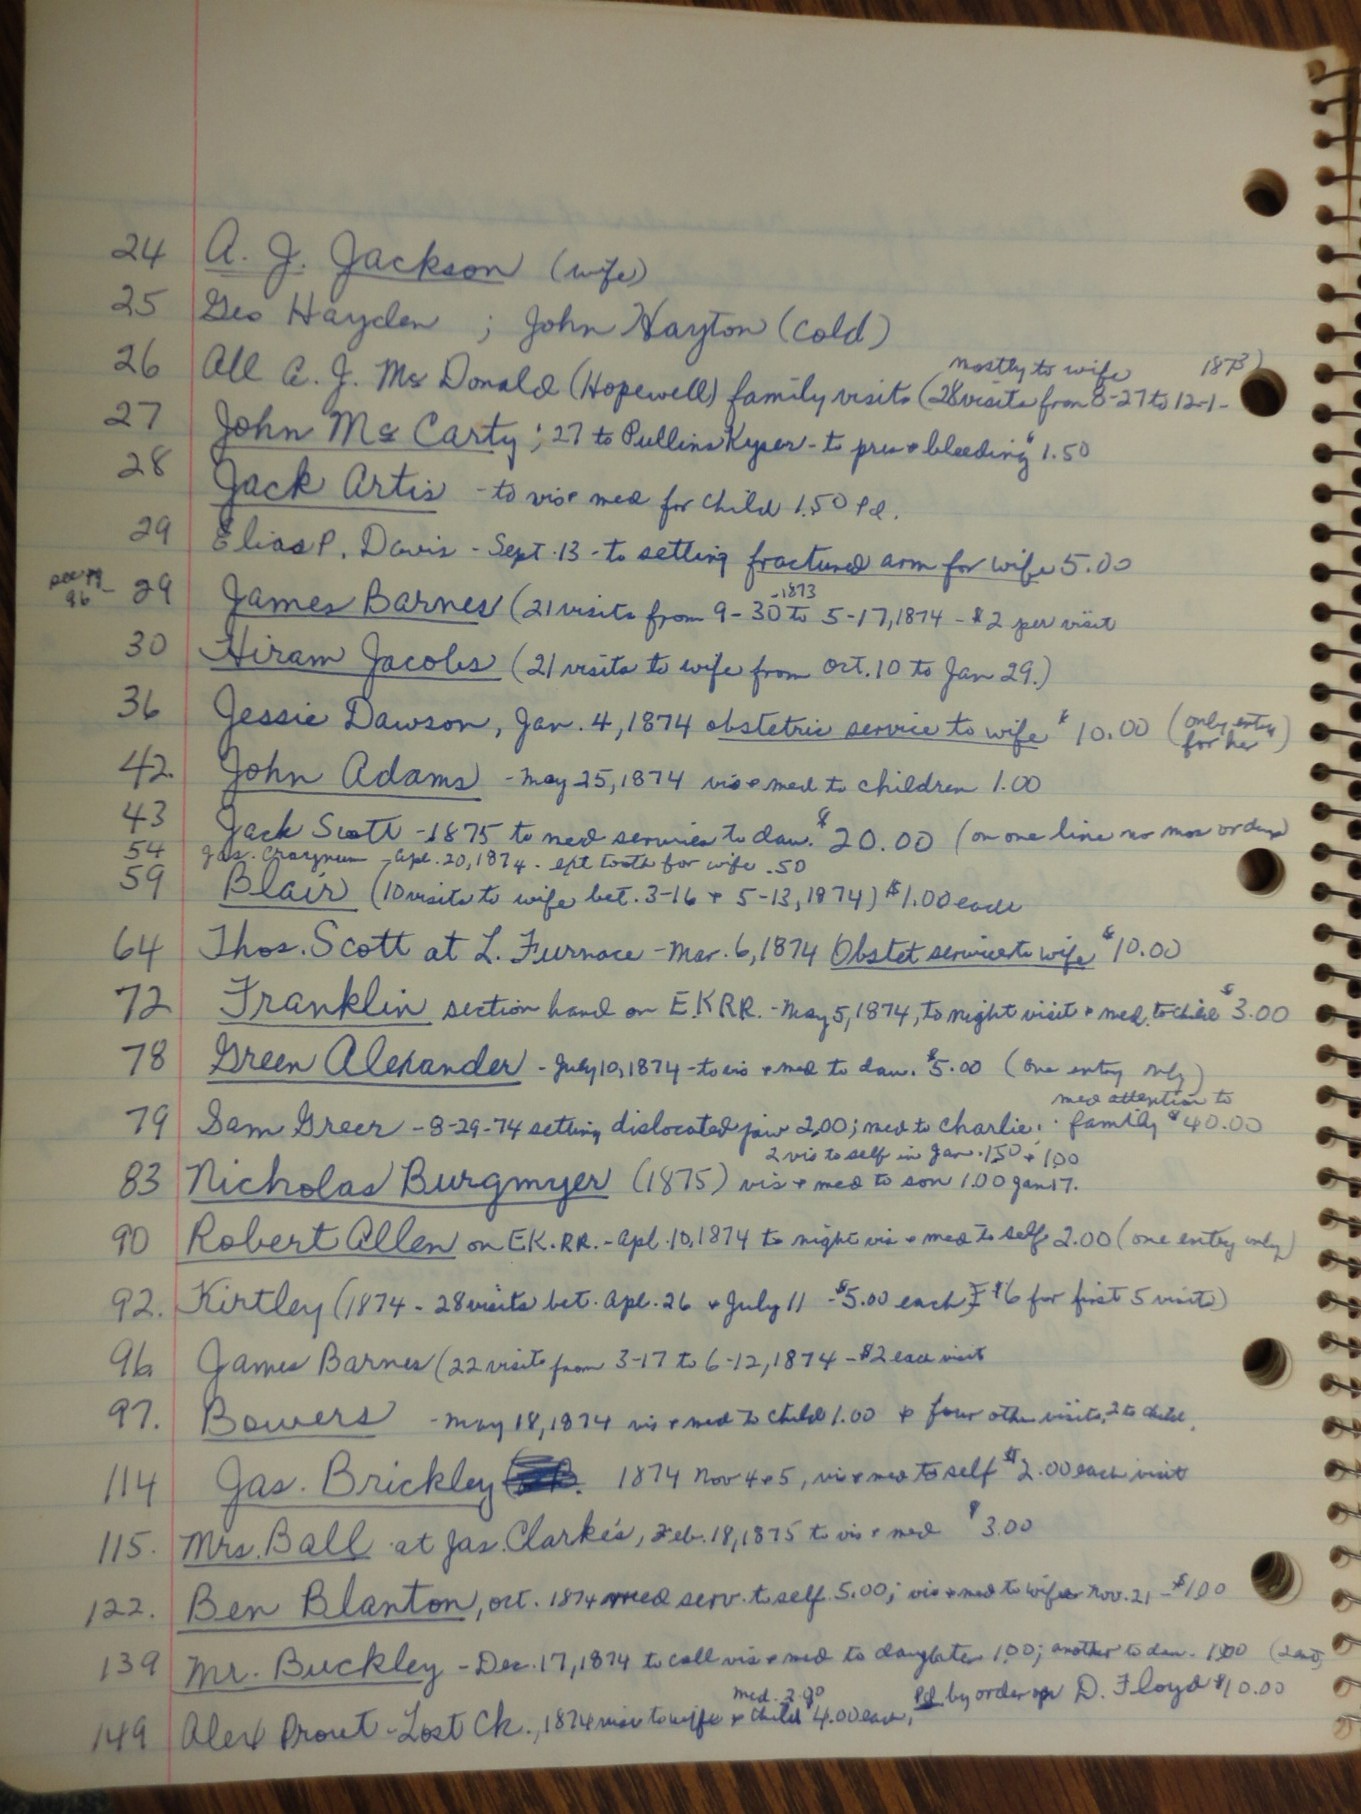 24 A. J. Jackson (wife)
25 Geo Hayden ; John Hayton (cold)
mostly to wife 1873)
26 All A. J. Mc Donald (Hopewell) family visits (28 visits from 8-27 to 12-1-
27 John Mc Carty; 27 to Pullins Kyser - to pres + bleeding $1.50
28 Jack Artis - to vis + med for child 1.50 Pd.
29 Elias P. Davis - Sept. 13 - to setting fractured arm for wife 5.00
-1873
96 - 29 James Barnes (21 visits from 9-30 to 5-17, 1874 - $2 per visit
30 Hiram Jacobs (21 visits to wife from Oct. 10 to Jan 29.)
36 Jessie Dawson, Jan. 4, 1874 obstetric service to wife $10.00 (only entry for her)
42. John Adams - May 25, 1874 vis + med to children 1.00
43 Jack Scott - 1875 to med services to dau. $20.00 (on one line no mos or days)
54 Jas. - Apl. 20, 1874 - ext tooth for wife .50
59 Blair (10 visits to wife bet. 3-16 + 5-13, 1874) $1.00 each
64 Thos. Scott at L. Furnace - Mar. 6, 1874 Obstet services to wife $10.00
72 Franklin section hand on E.K.R.R. - May 5, 1874, to night visit + med. to child $3.00
78 Green Alexander - July 10, 1874 - to vis + med to dau. $5.00 (one entry only)
med attention to
79 Sam Greer - 8-29-74 setting dislocated jaw 2.00; med to Charlie; family $40.00
2 vis to self in Jan. 1.50 + 1.00
83 Nicholas Burgmyer (1875) vis + med to son 1.00 Jan 17.
90 Robert Allen on E.K.R.R. - Apl. 10, 1874 to night vis + med to self 2.00 (one entry only)
92. Kirtley (1874 - 28 visits bet. Apl. 26 + July 11 - $5.00 each, $6 for first 5 visits)
96 James Barnes (22 visits from 3-17 to 6-12, 1874 - $2 each visit
97. Bowers - May 18, 1874 vis + med to child 1.00 + four other visits, 2 to child.
114 Jas. Brickley 1874 Nov 4 + 5, vis + med to self $2.00 each visit
115. Mrs. Ball at Jas. Clarke's, Feb. 18, 1875 to vis + med $3.00
122. Ben Blanton, Oct. 1874 med serv. to self 5.00; vis + med to wife Nov. 21 - $1.00
139 Mr. Buckley - Dec. 17, 1874 to call vis + med to daughter 1.00; another to dau. 1.00
med. 2.90 Pd by order on D. Floyd $10.00
149 Alex Prout - Lost Ck., 1874 visit to wife + child 4.00 each,